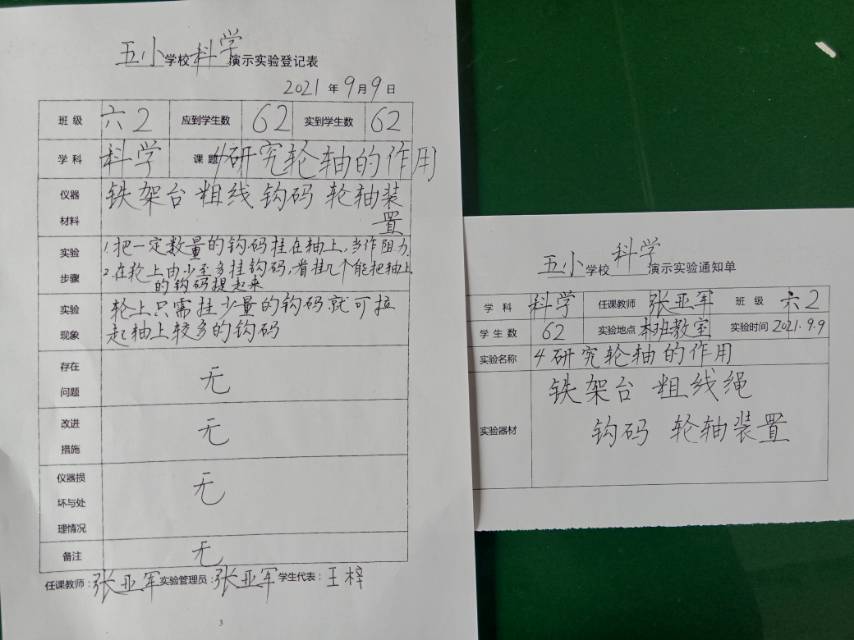 五小学校科学演示实验登记表
2021年9月9日
班级 六2 应到学生数 62 实到学生数 62
学科 科学 课题 4研究轮轴的作用
仪器材料 铁架台 粗线 钩码 轮轴装
置
实验步骤 1.把一定数量的钩码挂在轴上,当作阻力.
2.在轮上由少至多挂钩码,看挂几个能把轴上
的钩码提起来
实验现象 轮上只需挂少量的钩码就可拉
起轴上较多的钩码
存在问题 无
改进措施 无
仪器损坏与处理情况 无
备注 无
任课教师:张亚军 实验管理员:张亚军 学生代表:王梓
3
五小学校科学演示实验通知单
学科 科学 任课教师 张亚军 班级 六2
学生数 62 实验地点 本班教室 实验时间 2021.9.9
实验名称 4研究轮轴的作用
实验器材 铁架台 粗线绳
钩码 轮轴装置